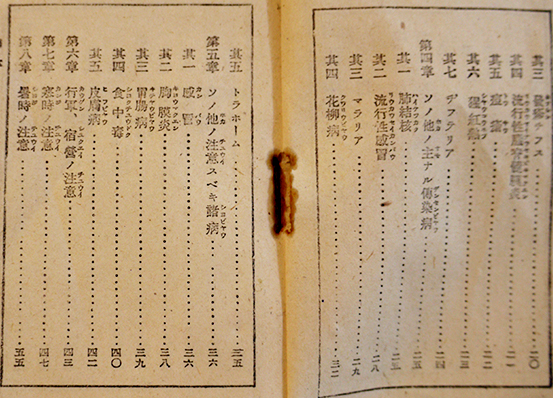 其三 發疹チフス……二〇
其四 流行性腦脊髓膜炎……
其五 痘瘡……二二
其六 猩紅熱……
其七 ヂフテリア……二四
第四章 ソノ他ノ主ナル傳染病……
其一 肺結核……二五
其二 流行性感冒……二八
其三 マラリア……二九
其四 花柳病……三二
其五 トラホーム……三五
第五章 ソノ他ノ注意スベキ諸病……三六
其一 感冒……三六
其二 胸膜炎……三八
其三 胃腸病……三九
其四 食中毒……四〇
其五 皮膚病……四二
第六章 行軍、宿營ノ注意……四三
第七章 寒時ノ注意……四七
第八章 暑時ノ注意……五五